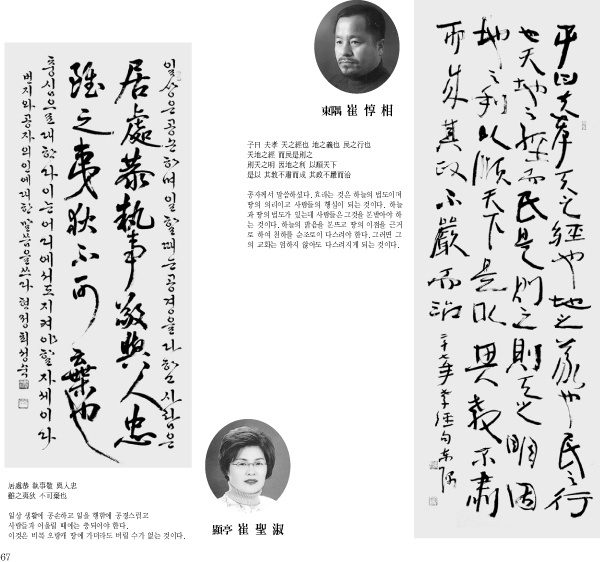 일상은공손하며일할때는공경을다하고사람들은
居處恭執事敬與人忠
雖之夷狄不可棄也
충심으로대하라이는어디에서도지켜야할자세이라
번지와공자의인에대한말씀을쓰다 현정최성숙
居處恭 執事敬 與人忠
雖之夷狄 不可棄也
일상 생활에 공손하고 일을 행함에 공경스럽고
사람들과 어울릴 때에는 충되어야 한다.
이것은 비록 오랑캐 땅에 가더라도 버릴 수가 없는 것이다.
67
東隅 崔惇相
子曰 夫孝 天之經也 地之義也 民之行也
天地之經 而民是則之
則天之明 因地之利 以順天下
是以 其敎不肅而成 其政不嚴而治
공자께서 말씀하셨다. 효라는 것은 하늘의 법도이며
땅의 의리이고 사람들의 행실이 되는 것이다. 하늘
과 땅의 법도가 있는데 사람들은 그것을 본받아야 하
는 것이다. 하늘의 밝음을 본뜨고 땅의 이점을 근거
로 하여 천하를 순조로이 다스려야 한다. 그러면 그
의 교화는 엄하지 않아도 다스려지게 되는 것이다.
顯亭 崔聖淑
子曰夫孝天之經也地之義也民之行
也天地之經而民是則之則天之明因
地之利以順天下是以其敎不肅
而成其政不嚴而治
二十七年 孝經句 東隅